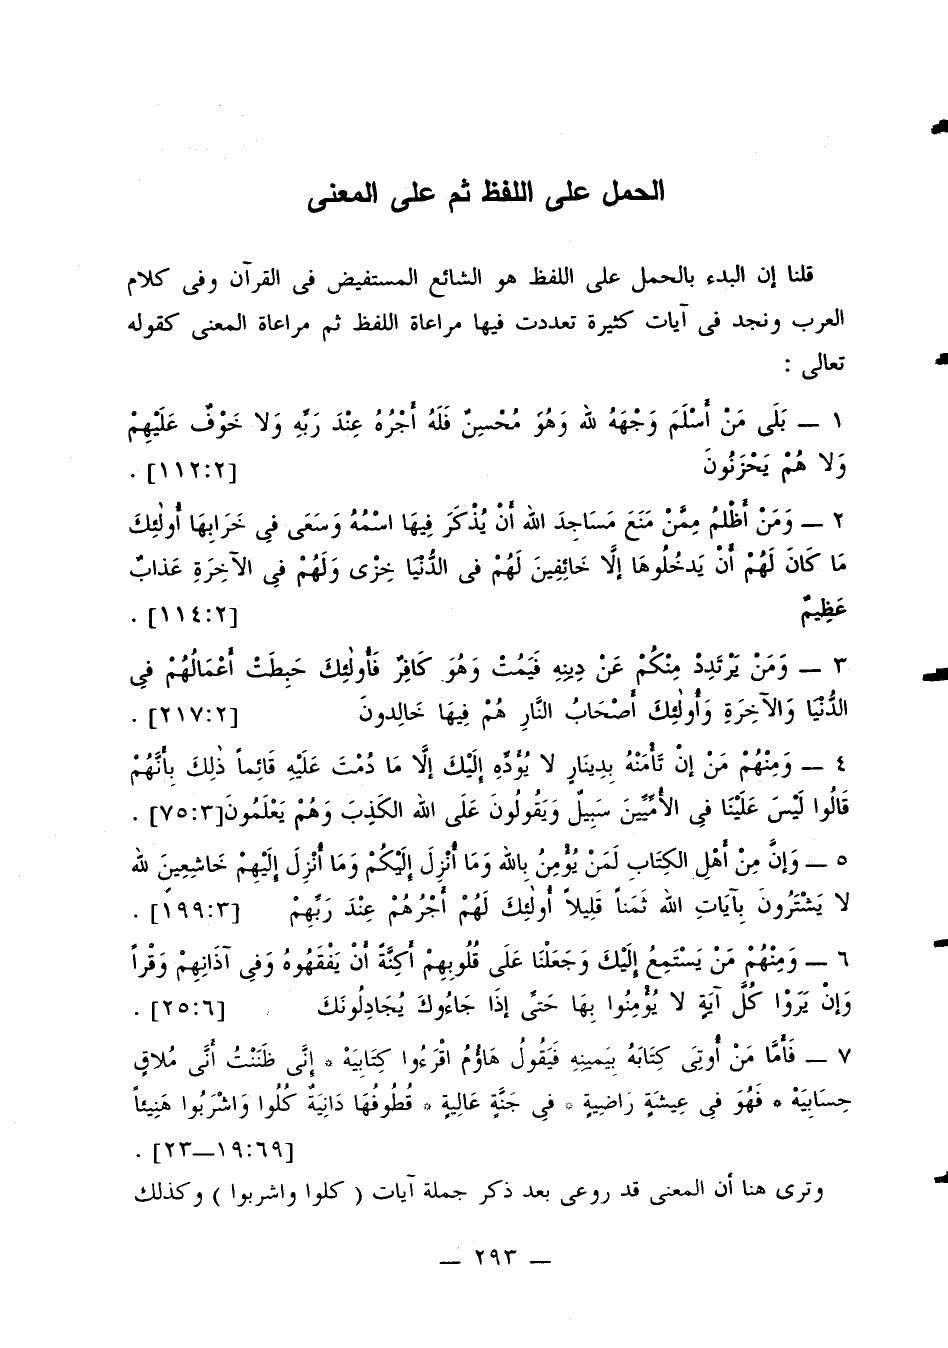 الحمل على اللفظ ثم على المعنى
قلنا إن البدء بالحمل على اللفظ هو الشائع المستفيض فى القرآن وفى كلام
العرب ونجد فى آيات كثيرة تعددت فيها مراعاة اللفظ ثم مراعاة المعنى كقوله
تعالى :
١ — بَلَى مَنْ أَسْلَمَ وَجْهَهُ لله وَهُوَ مُحْسِنٌ فَلَهُ أَجْرُهُ عِنْدَ رَبِّهِ وَلا خَوْفٌ عَلَيْهِمْ
وَلا هُمْ يَحْزَنُونَ [١١٢:٢] .
٢ — وَمَنْ أَظْلمُ مِمَّنْ مَنَعَ مَسَاجِدَ الله أَنْ يُذْكَرَ فِيهَا اسْمُهُ وَسَعَى فِي خَرَابِهَا أُولٰئِكَ
مَا كَانَ لَهُمْ أَنْ يَدخُلُوهَا إلَّا خَائِفِينَ لَهُمْ فى الدُّنْيَا خِزْى وَلَهُمْ فِي الآخِرَةِ عَذابٌ
عَظِيمٌ [١١٤:٢] .
٣ — وَمَنْ يَرْتَدِدْ مِنْكُمْ عَنْ دِينِهِ فَيَمُتْ وَهُوَ كَافِرٌ فَأُولٰئِكَ حَبِطَتْ أَعْمَالُهُمْ فِي
الدُّنْيَا وَالآخِرَةِ وَأُولٰئِكَ أَصْحَابُ النَّارِ هُمْ فِيهَا خَالِدونَ [٢١٧:٢] .
٤ — وَمِنْهُمْ مَنْ إنْ تَأْمَنْهُ بِدِينَارٍ لا يُؤَدِّه إلَيْكَ إلَّا مَا دُمْتَ عَلَيْهِ قَائِماً ذٰلِكَ بِأَنَّهُمْ
قَالُوا لَيْسَ عَلَيْنَا فى الأُمِّيِّينَ سَبِيلٌ وَيَقُولُونَ عَلَى الله الكَذِبَ وَهُمْ يَعْلَمُونَ[٧٥:٣] .
٥ — وَإنَّ مِنْ أَهْلِ الكِتَابِ لَمَنْ يُؤْمِنُ بِالله وَمَا أُنْزِلَ إلَيْكُمْ وَمَا أُنْزِلَ إلَيْهِمْ خَاشِعِينَ لله
لا يَشْتَرُونَ بِآيَاتِ الله ثَمَناً قَلِيلاً أُولٰئِكَ لَهُمْ أَجْرُهُمْ عِنْدَ رَبِّهِمْ [١٩٩:٣] .
٦ — وَمِنْهُمْ مَنْ يَسْتَمِعُ إلَيْكَ وَجَعَلْنَا عَلَى قُلُوبِهِمْ أَكِنَّةً أَنْ يَفْقَهُوهُ وَفِي آذَانِهِمْ وَقْراً
وَإنْ يَرَوْا كُلَّ آيَةٍ لا يُؤْمِنُوا بِهَا حَتَّى إذَا جَاءُوكَ يُجَادِلُونَكَ [٢٥:٦] .
٧ — فَأَمَّا مَنْ أُوتِىَ كِتَابَهُ بِيَمينِهِ فَيَقُولُ هَاؤُمُ اقْرَءُوا كِتَابِيَهْ * إنِّى ظَنَنْتُ أَنِّى مُلاقٍ
حِسَابِيَهْ * فَهُوَ فى عِيشَةٍ رَاضِيةٍ * فِي جَنَّةٍ عَالِيةٍ * قُطُوفُهَا دَانِيَةٌ كُلُوا وَاشْرَبُوا هَنِيئاً
[١٩:٦٩—٢٣] .
وترى هنا أن المعنى قد روعى بعد ذكر جملة آيات ( كلوا واشربوا ) وكذلك
— ٢٩٣ —